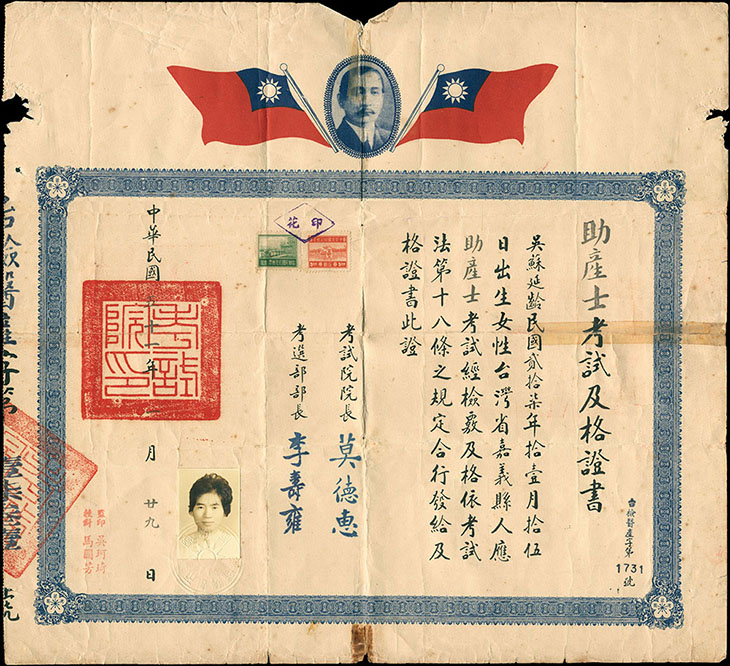 助產士考試及格證書
吳蘇延齡民國貳拾柒年拾壹月拾伍
日出生女性台灣省嘉義縣人應
助產士考試經檢覈及格依考試
法第十八條之規定合行發給及
格證書此證
考試院院長 莫德惠
考選部部長 李壽雍
印花
中華民國五十一年一月廿九日
考試院印
監印 吳珂琦
校對 馬國芳
台檢醫產字第
1731
號